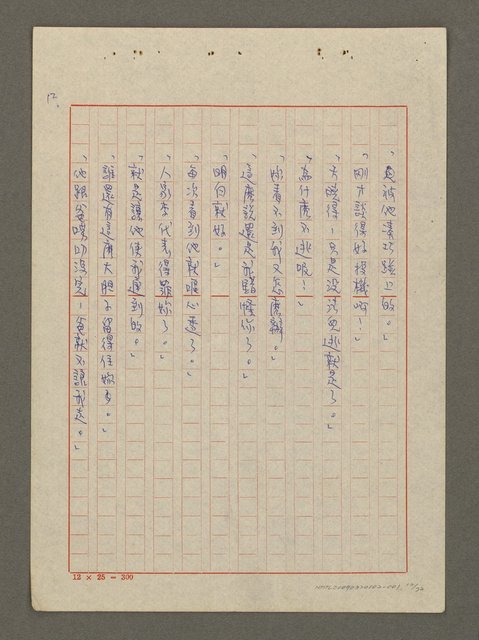 17.
「是被他湊巧碰上的。」
「剛才談得好投機呀!」
「才曉得!只是沒法兒逃就是了。」
「為什麼不逃呢!」
「你看不到我又怎麼辦。」
「這麼說還是我錯怪你了。」
「明白就好。」
「每次看到他就噁心透了。」
「人家李代表得罪妳了。」
「就是讓他使我遇到的。」
「誰還有這麼大胆子留得住妳多。」
「他跟爸嗎叻沒完!爸就不讓我走。」
12 × 25 = 300